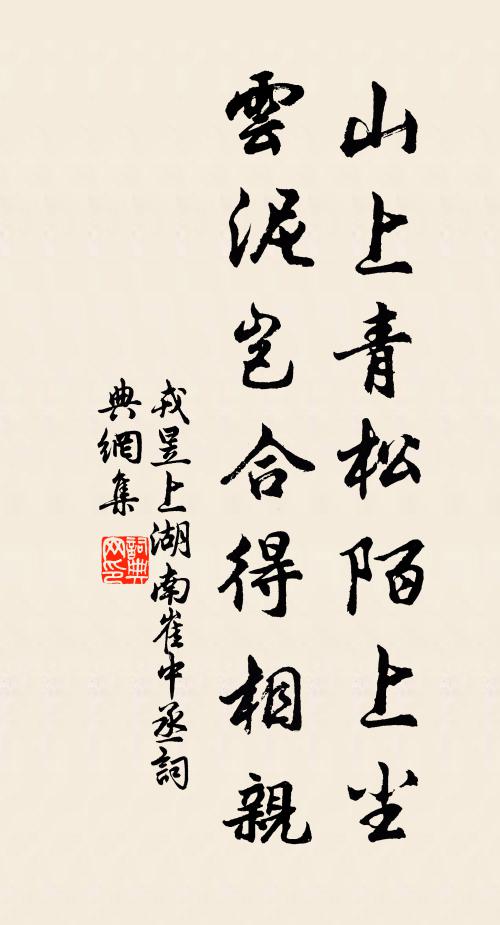 山上青松陌上尘
雲泥岂合得相親
戎昱上湖南崔中丞詞
典網集
詞典
网印